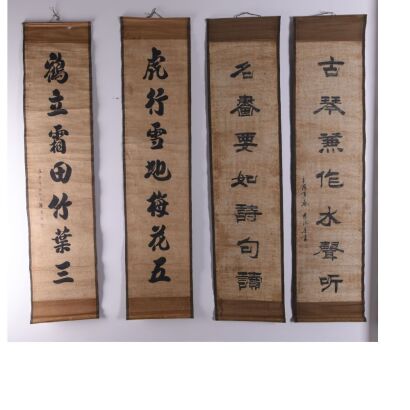 古琴兼作水聲听
名畫要如詩句讀
虎行雪地梅花五
鶴立霜田竹葉三